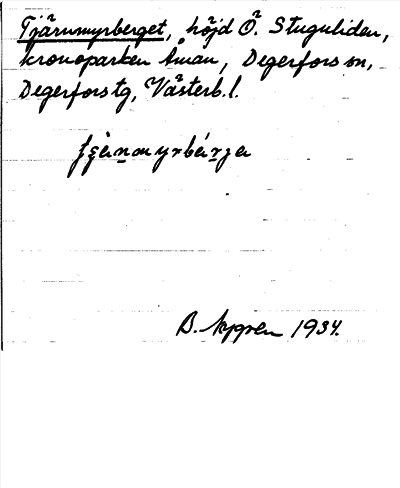 Tjärnmyrberget, höjd Ö. Stuguliden,
kronoparken Åman, Degerfors sn,
Degerfors tg, Västerb. l.
B. Nygren 1934.